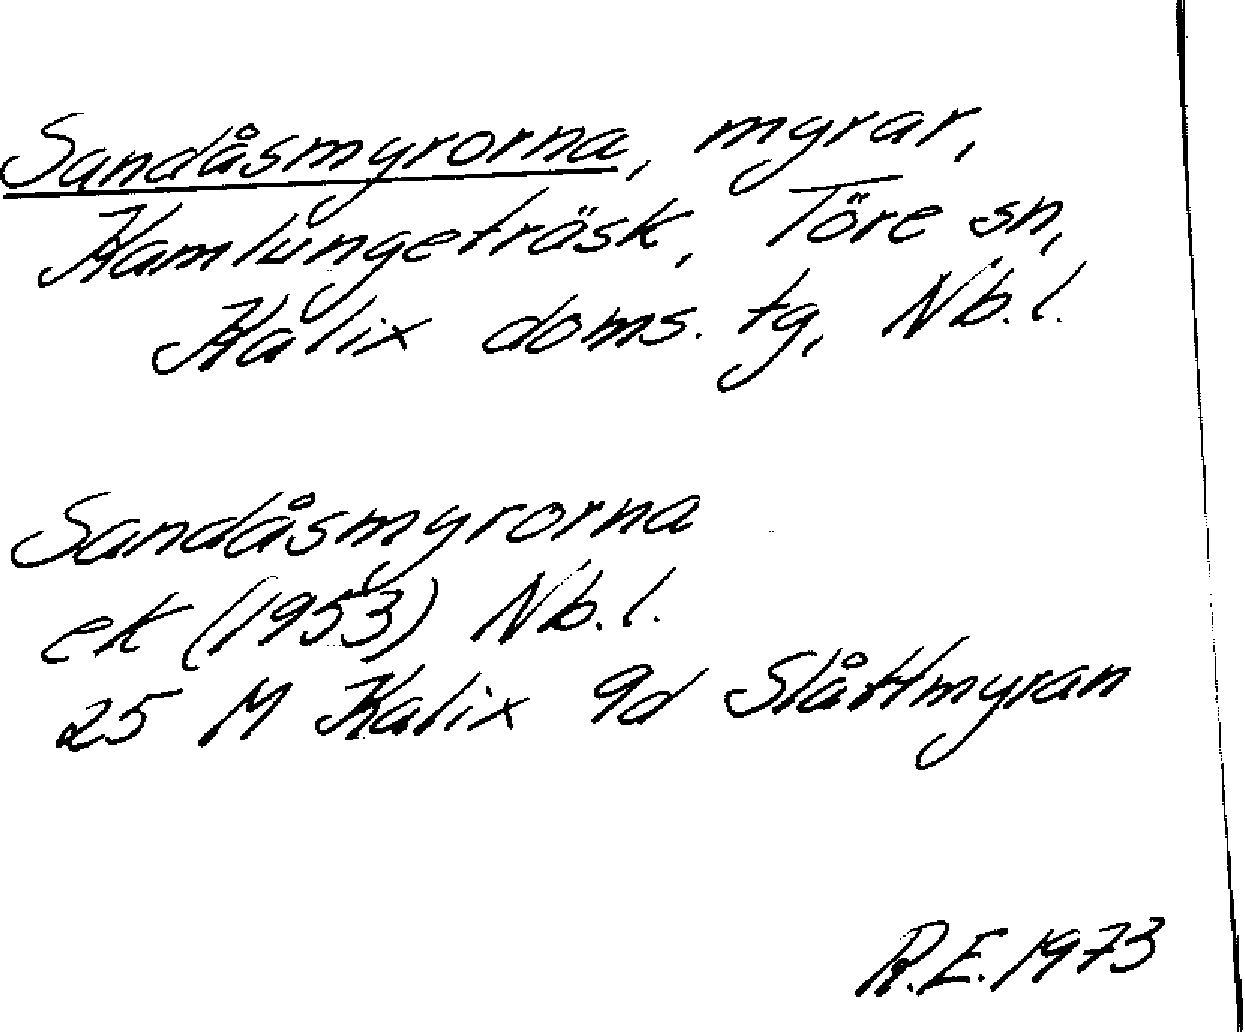 Sandåsmyrorna, myrar,
Kamlungeträsk, Töre sn,
Kalix doms. tg, Nb. l.
Sandåsmyrorna
ek (1953) Nb. l.
25 M Kalix 9d Slåttmyran
R.E. 1973